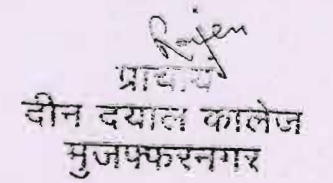 प्राचार्य
दीन दयाल कालेज
मुजफ्फरनगर